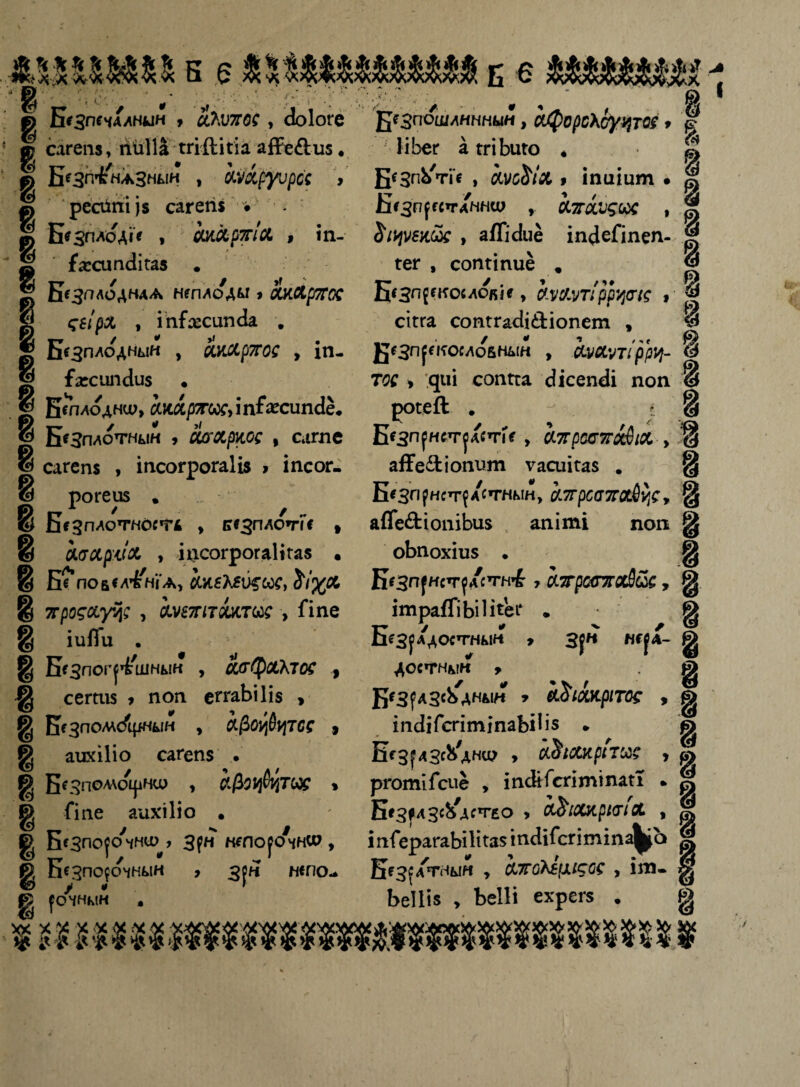 Б е Б е
Безпеча́лный , ἄλυπος , dolore
carens, nullâ triſtitia affectus.
Безпѣ́нязный , ἀνάργυρος ,
pecunijs carens .
Безпло́дїе , ἀκαρπία , in-
fæcunditas .
Безпло́днаѧ неплоды , ἄκαρπος
ςεῖρα , infæcunda .
Безпло́дный , ἄκαρπος , in-
fæcundus .
Безпло́днω, ἀκάρπως, infæcundè.
Безпло́тный , ἄσαρκος , carne
carens , incorporalis , incor-
poreus .
Безпло́тность , безпло́тїе ,
ἀσαρκία , incorporalitas .
Без повелѣ́нїѧ, ἀκελεύςως, δίχα
προςαγῆς , ἀνεπιτάκτως , ſine
iuſſu .
Безпогрѣ́шный , ἄσφαλτος ,
certus , non errabilis ,
Безпомо́щный , ἀβοήθητος ,
auxilio carens .
Безпомо́щнω , ἀβοηθήτως ,
ſine auxilio .
Безпоро́чнω , зри непоро́чнω ,
Безпоро́чный , зри непо-
ро́чный .
Безпо́шлинный , ἀφορολόγητος ,
liber à tributo .
Безпꙋ́тїе , ἀνοδία , inuium .
Безпреста́ннω , ἀπάυςως ,
διηνεκῶς , aſſiduè indefinen-
ter , continuè .
Безпрекосло́вїе , ἀναντίῤῥησις ,
citra contradictionem ,
Безпрекосло́вный , ἀναντίῤῥη-
τος , qui contra dicendi non
poteſt .
Безпристра́стїе , ἀπροσπάθια ,
affectionum vacuitas .
Безпристра́стный, ἀπροσπαθής,
affectionibus animi non
obnoxius .
Безпристра́стнѣ , ἀπροσπαθῶς ,
impaſſibiliter .
Безра́достный , зри нера́-
достный ,
Безразсꙋ́дный , ἀδιάκριτος ,
indiſcriminabilis .
Безразсꙋ́днω , ἀδιακρίτως ,
promiſcuè , indiſcriminatĩ .
Безразсꙋ́дство , ἀδιακρισία ,
inſeparabilitas indiſcrimina
Безра́тный , ἀπολέμιςος , im-
bellis , belli expers .